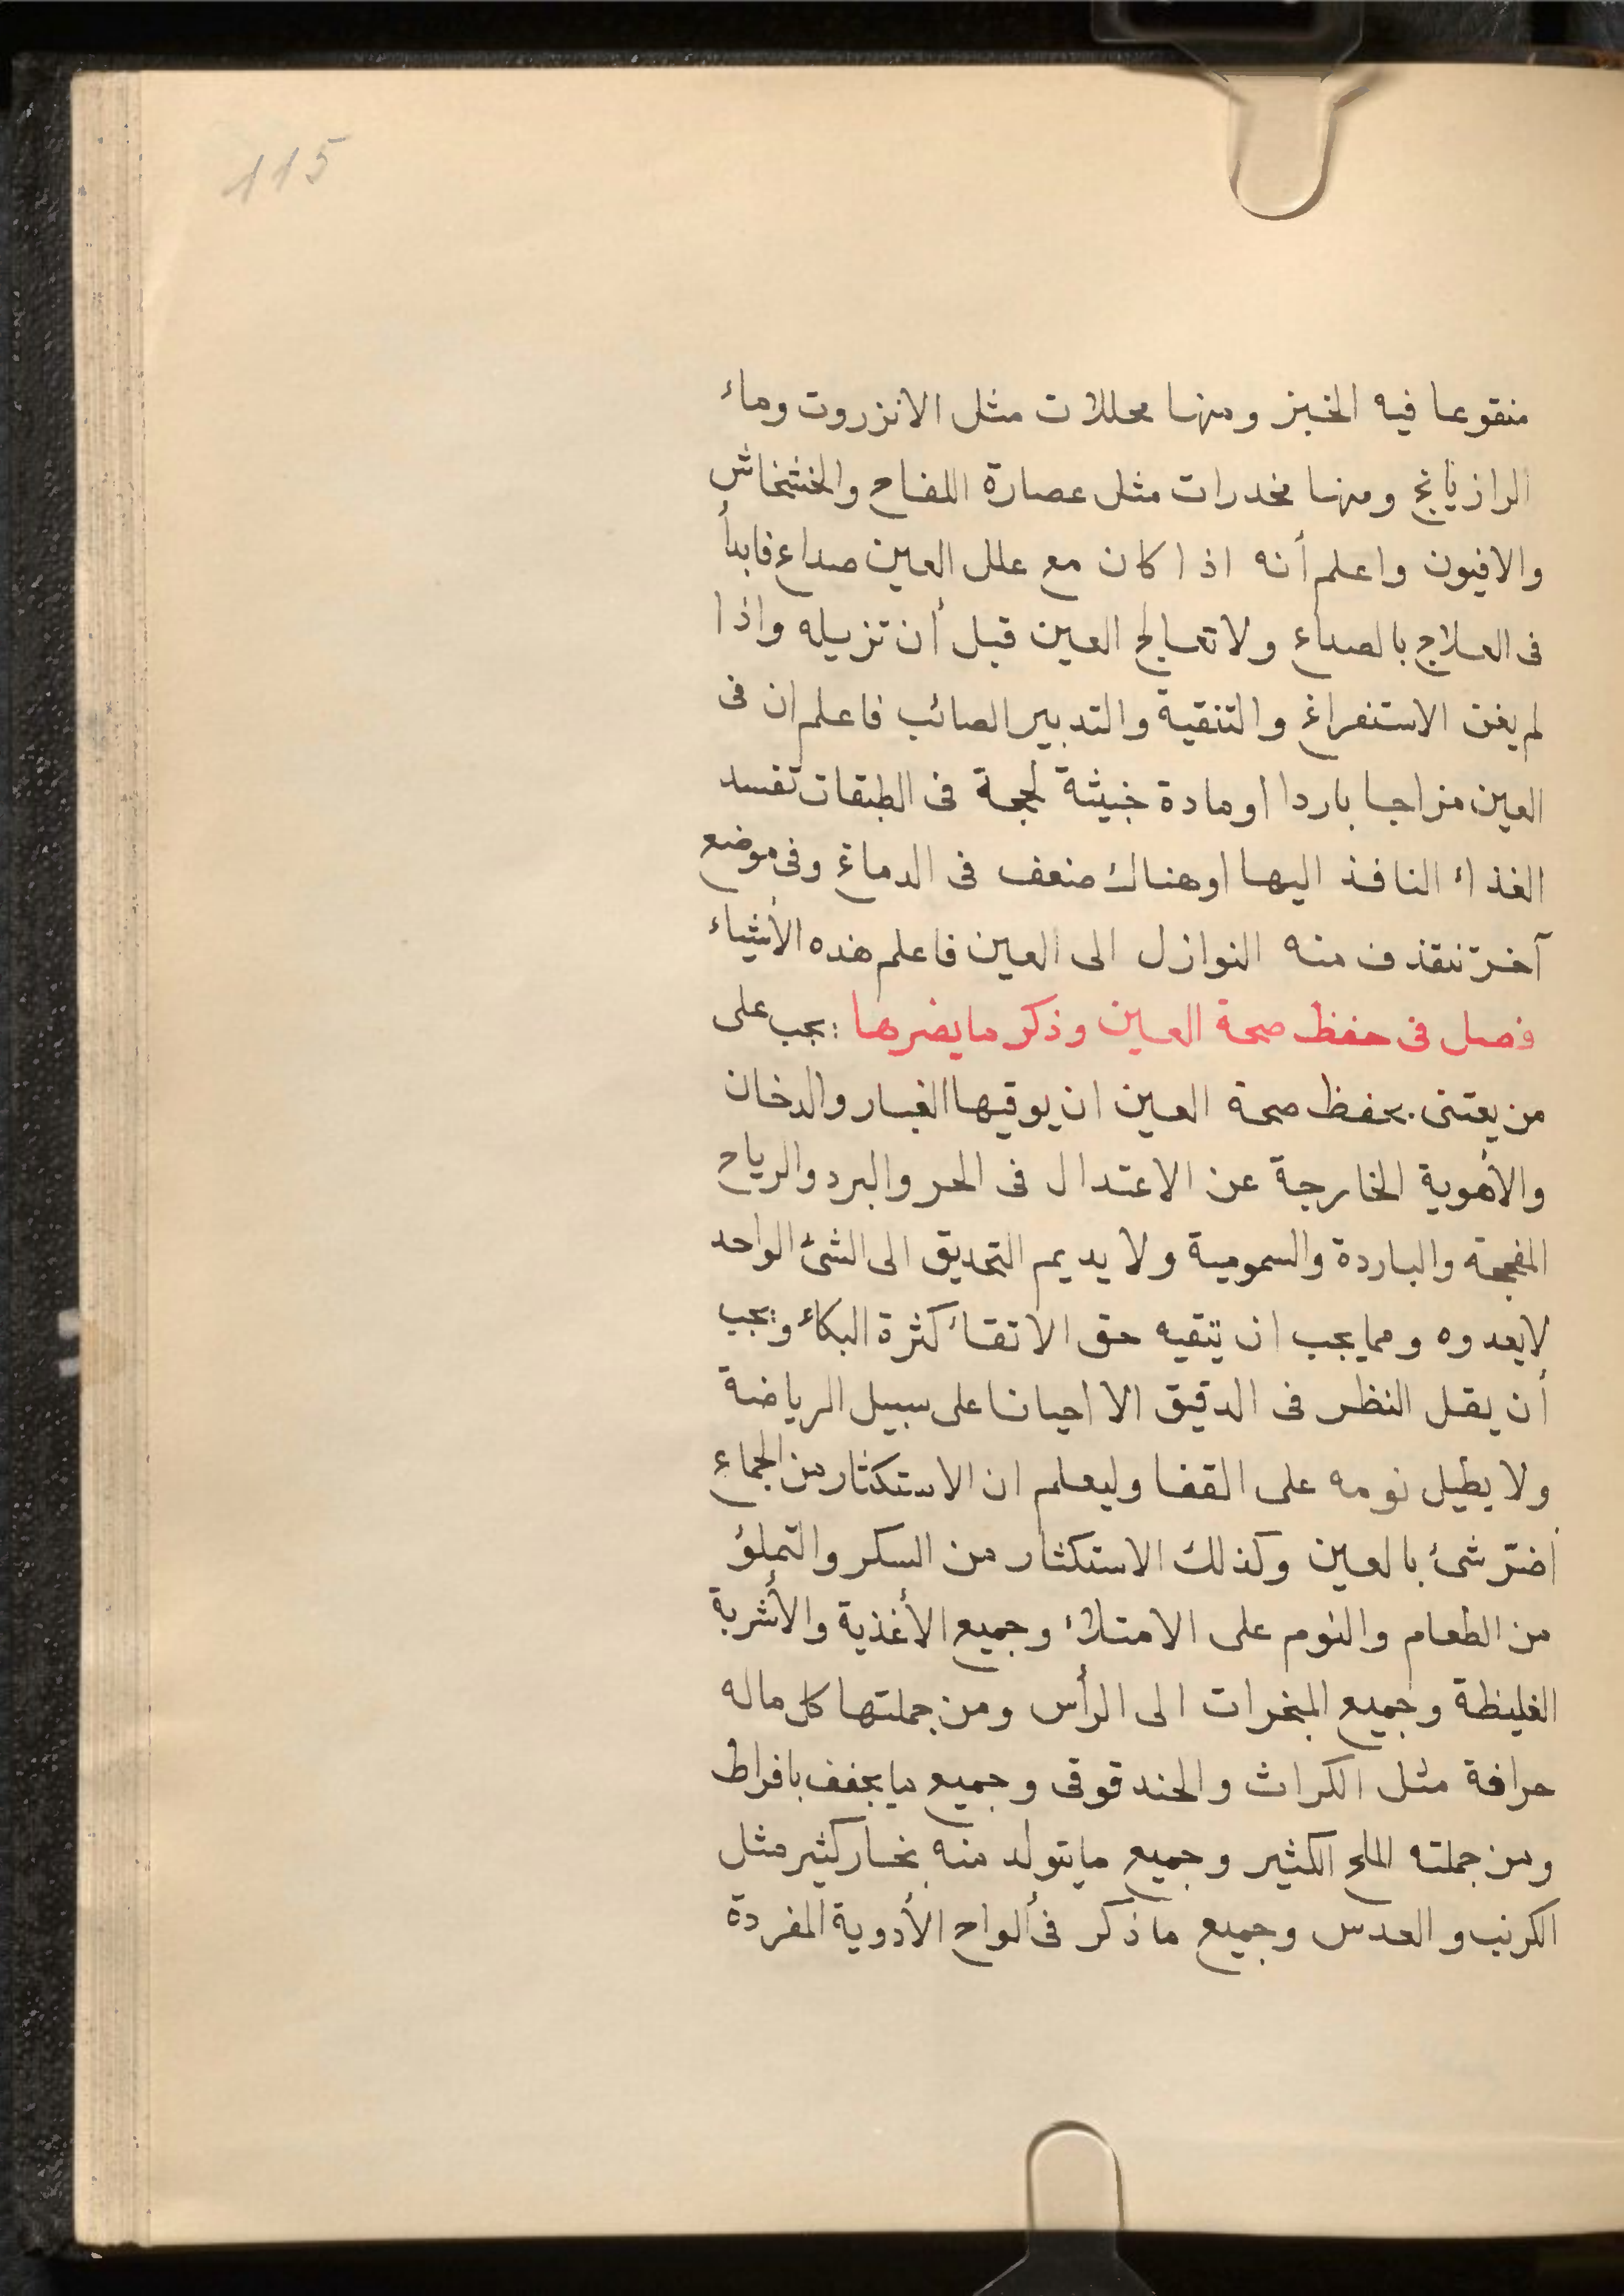 115
منقوعا فيه الخبز ومنها محللات مثل الانزروت وماء
الرازيانج ومنها مخدرات مثل عصارة اللفاح والخشخاش
والافيون واعلم أنه اذا كان مع علل العين صداع فابدأ
فى العلاج بالصداع ولا تعالج العين قبل أن تزيله واذا
لم يغن الاستفراغ والتنقية والتدبير الصائب فاعلم ان فى
العين مزاجا باردا او مادة خبيثة لحجة فى الطبقات تفسد
الغذاء النافذ اليها او هناك ضعف فى الدماغ وفى موضع
آخر تنقذف منه النوازل الى العين فاعلم هذه الأشياء
فصل فى حفظ صحة العين وذكر ما يضرها : يجب على
من يعتنى بحفظ صحة العين ان يوقيها الغبار والدخان
والأهوية الخارجة عن الاعتدال فى الحر والبرد والرياح
المفججة والباردة والسمومية ولا يديم التحديق الى الشئ الواحد
لا يعدوه ومما يجب ان يتقيه حق الاتقاء كثرة البكاء ويجب
أن يقل النظر فى الدقيق الا احيانا على سبيل الرياضة
ولا يطيل نومه على القفا وليعلم ان الاستكثار من الجماع
اضرّ شئ بالعين وكذلك الاستكثار من السكر والتملؤ
من الطعام والنوم على الامتلاء وجميع الأغذية والأشربة
الغليظة وجميع المبخرات الى الرأس ومن جملتها كل ماله
حرافة مثل الكراث والحندقوقى وجميع ما يجفف بافراط
ومن جملته الملح الكثير وجميع ما يتولد منه بخار كثير مثل
الكرنب والعدس وجميع ما ذكر فى ألواح الأدوية المفردة